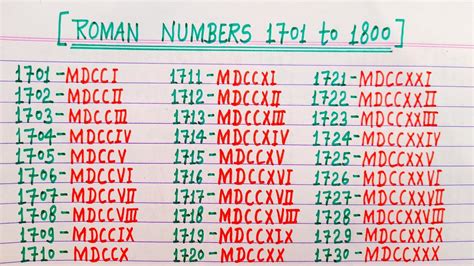 [ROMAN NUMBERS 1701 to 1800]
1701-MDCCI 1711-MDCCXI 1721-MDCCXXI
1702-MDCCII 1712-MDCCXII 1722-MDCCXXII
1703-MDCCIII 1713-MDCCXIII 1723-MDCCXXIII
1704-MDCCIV 1714-MDCCXIV 1724-MDCCXXIV
1705-MDCCV 1715-MDCCXV 1725-MDCCXXV
1706-MDCCVI 1716-MDCCXVI 1726-MDCCXXVI
1707-MDCCVII 1717-MDCCXVII 1727-MDCCXXVII
1708-MDCCVIII 1718-MDCCXVIII 1728-MDCCXXVIII
1709-MDCCIX 1719-MDCCXIX 1729-MDCCXXIX
1710-MDCCX 1720-MDCCXX 1730-MDCCXXX